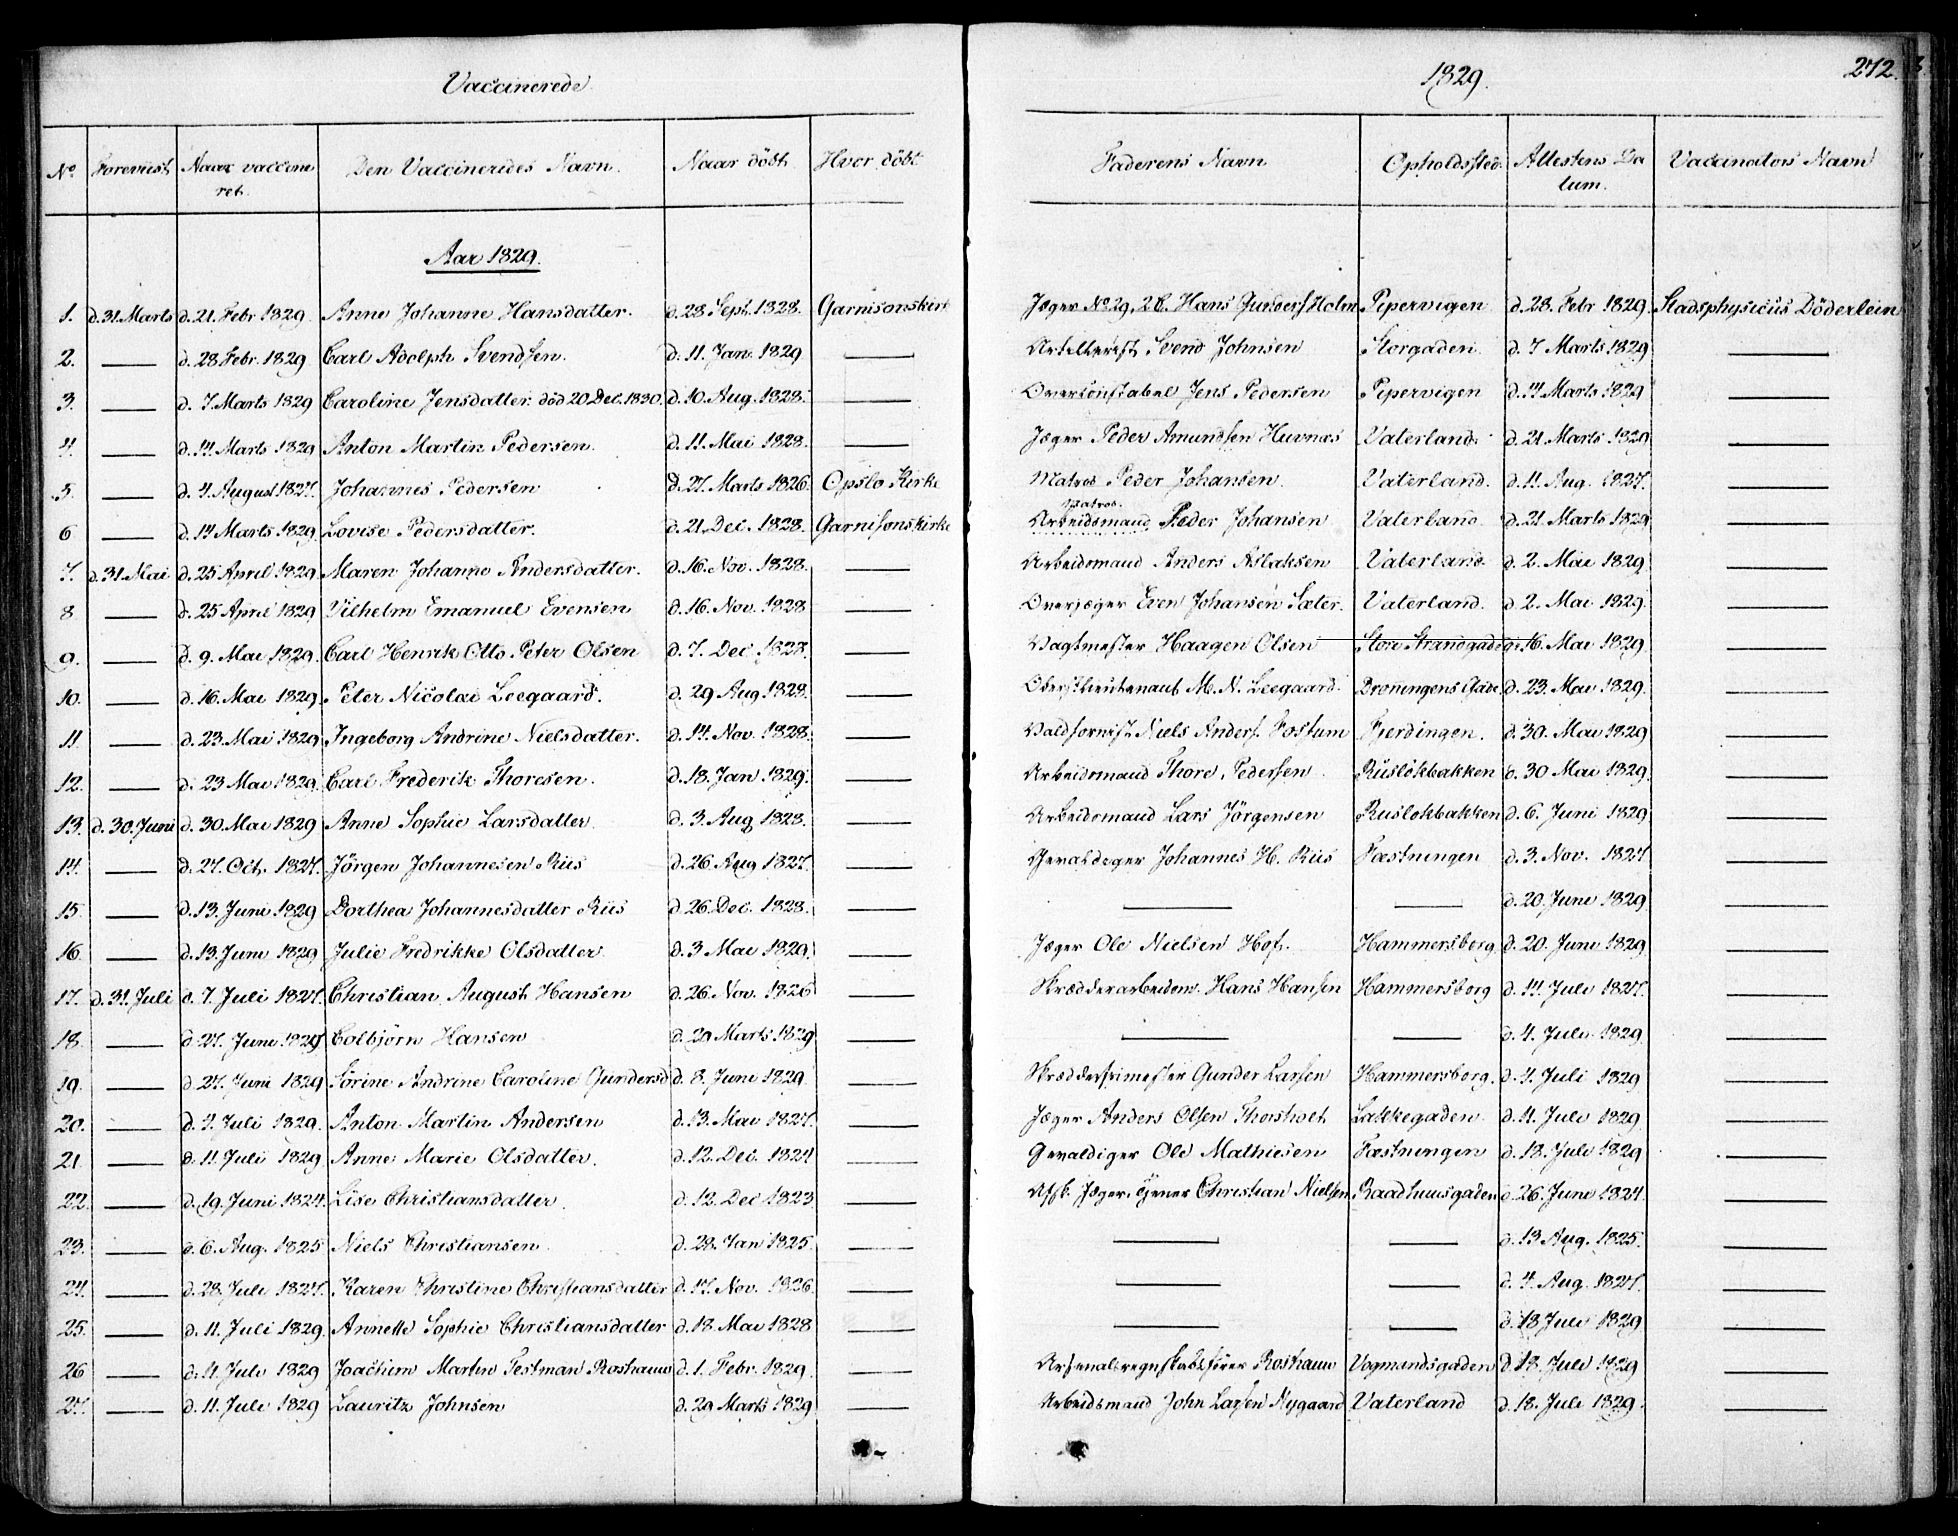 Vaccinerede.
1829.
272.
No. Foreviist Naar vaccineret. Den Vaccineredes Navn. Naar döbt Hvor döbt Faderens Navn Opholdssted. Attestens Datum. Vaccinators Navn
Aar 1829.
1. d. 31. Marts d. 21. Febr 1829. Anne Johanne Hansdatter. d. 28 Sept. 1828. Garnisonskirk Jæger No. 29, 2 B. Hans Holm Pipervigen d. 28. Febr 1829. Stadsphysicus Döderlein
2. — d. 28. Febr. 1829 Carl Adolph Svendsen. d. 11. Jan. 1829 — Artillerist Svend Johnsen Storgaden d. 7 Marts 1829 —
3. — d. 7 Marts 1829 Caroline Jensdatter. död 20 Dec. 1830. d. 10. Aug. 1828. — Overconstabel Jens Pedersen Pipervigen d. 14 Marts 1829 —
4. — d. 14. Marts 1829 Anton Martin Pedersen. d. 11. Mai 1828. — Jæger Peder Amundsen Huvnæs Vaterland. d. 21 Marts 1829 —
5. — d. 4. August 1827. Johannes Pedersen d. 27. Marts 1826. Opslo Kirke Matros Peder Johansen. Vaterland. d. 11. Aug. 1827. —
Matros.
6 — d. 14 Marts 1829 Lovise Pedersdatter. d. 21. Dec. 1828. Garnisonskirke Arbeidsmand Peder Johansen Vaterland d. 21 Marts 1829 —
7. d. 31. Mai d. 25 April 1829 Maren Johanne Andersdatter. d. 16. Nov. 1828. — Arbeidsmand Anders Aslaksen Vaterland. d. 2. Mai 1829 —
8 — d. 25 April 1829 Vilhelm Emanuel Evensen d. 16. Nov. 1828 — Overjæger Even Johansen Sæter. Vaterland. d. 2. Mai 1829. —
9. — d. 9. Mai 1829. Carl Henrik Otto Peter Olsen d. 7. Dec 1828. — Vagtmester Haagen Olsen Store Strandgade d. 16. Mai 1829. —
10. — d. 16. Mai 1829. Peter Nicolai Leegaard. d. 29 Aug. 1828. — Oberstlieutenant M. N. Leegaard. Dronningens Gade. d. 23. Mai 1829. —
11 — d. 23. Mai 1829. Ingeborg Andrine Nielsdatter. d. 14. Nov. 1828. — Valdhornist Niels Anders. Fossum Fjerdingen. d. 30. Mai 1829 —
12. — d. 23 Mai 1829. Carl Frederik Thoresen. d. 18. Jan 1829. — Arbeidsmand Thore Pedersen Ruslökbakken d. 30 Mai 1829. —
13. d. 30. Juni d. 30. Mai 1829 Anne Sophie Larsdatter. d. 3. Aug 1828. — Arbeidsmand Lars Jörgensen Ruslökbakken d. 6. Juni 1829 —
14. — d. 27. Oct. 1827. Jörgen Johannesen Riis d. 26. Aug 1827. — Gevaldiger Johannes H. Riis Fæstningen d. 3. Nov. 1827 —
15. — d. 13. Juni 1829 Dorthea Johannesdatter Riis d. 26. Dec. 1828. — — — d. 20. Juni 1829 —
16. — d. 13. Juni 1829 Julie Fredrikke Olsdatter d. 3. Mai 1829. — Jæger Ole Nielsen Hof. Hammersborg d. 20. Juni 1829 —
17. d. 31. Juli d. 7. Juli 1827. Christian August Hansen d. 26. Nov. 1826 — Skrædderarbeidsm. Hans Hansen Hammersborg d. 14. Juli 1827. —
18. — d. 27. Juni 1829 Colbjörn Hansen d. 29 Marts 1829 — — — d. 4. Juli 1829 —
19. — d. 27. Juni 1829 Sörine Andrine Caroline Gundersd d. 8. Juni 1829 — Skræddersvimester Gunder Larsen Hammersborg. d. 4. Juli 1829 —
20. — d. 4. Juli 1829. Anton Martin Andersen d. 13. Mai 1827. — Jæger Anders Olsen Thorsholt Lakkegaden d. 11. Juli 1829 —
21 — d. 11. Juli 1829. Anne Marie Olsdatter. d. 12. Dec. 1824 — Gevaldiger Ole Mathiesen Fæstningen d. 18. Juli 1829 —
22. — d. 19. Juni 1824. Lise Christiansdatter. d. 12. Dec 1823 — Afsk. Jæger, Tjener Christian Nielsen Raadhuusgaden d. 26. Juni 1824. —
23. — d. 6. Aug. 1825 Niels Christiansen. d. 28. Jan 1825. — — — d. 13 Aug. 1825. —
24. — d. 28. Juli 1827. Karen Christine Christiansdatter d. 17. Nov. 1826. — — — d. 4. Aug. 1827. —
25. — d. 11. Juli 1829. Annette Sophie Christiansdatter d. 18. Mai 1828 — — — d. 18 Juli 1829 —
26 — d. 11. Juli 1829 Joachim Martin Testman Roshauw d. 1. Febr. 1829. — Arsenalsregnskabsfører Roshauw Vogmandsgaden d. 18. Juli 1829 —
27. — d. 11. Juli 1829 Lauritz Johnsen d. 29 Marts 1829 — Arbeidsmand John Larsen Nygaard Vaterland d. 18. Juli 1829. —